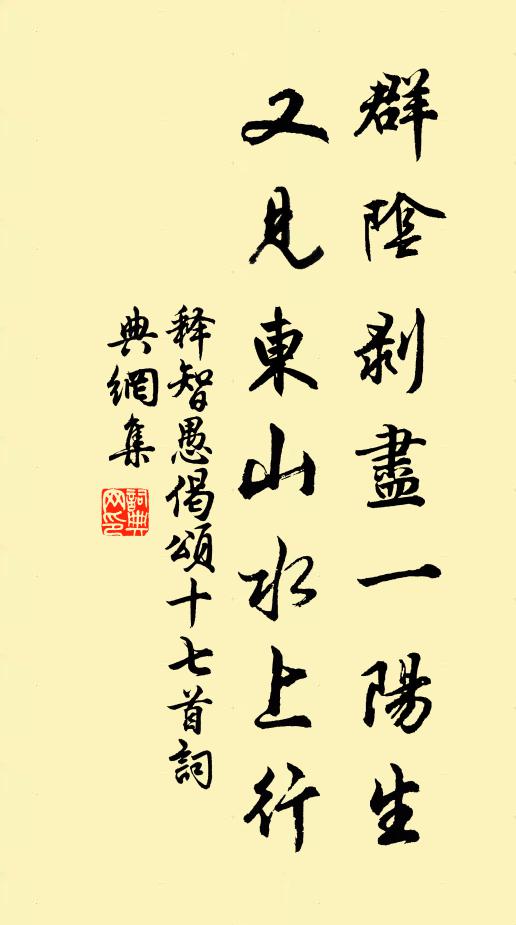 群陰剥盡一陽生
又見東山水上行
释智愚偈頌十七首詞
典網集
詞典網印